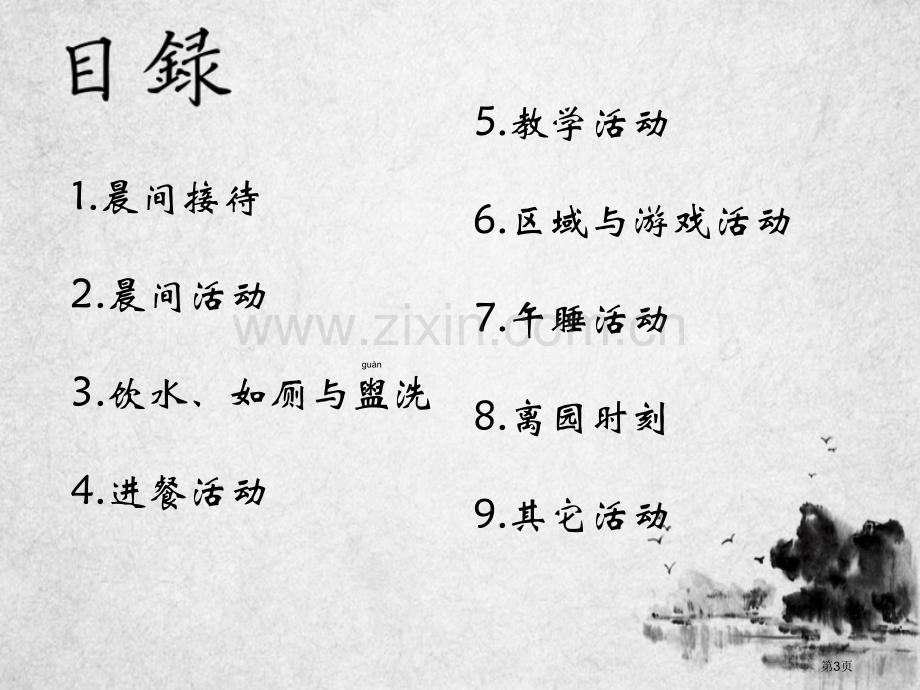 目録
1.晨间接待
2.晨间活动
guàn
3.饮水、如厕与盥洗
4.进餐活动
5.教学活动
6.区域与游戏活动
7.午睡活动
8.离园时刻
9.其它活动
www.zixin.com.cn
第3页